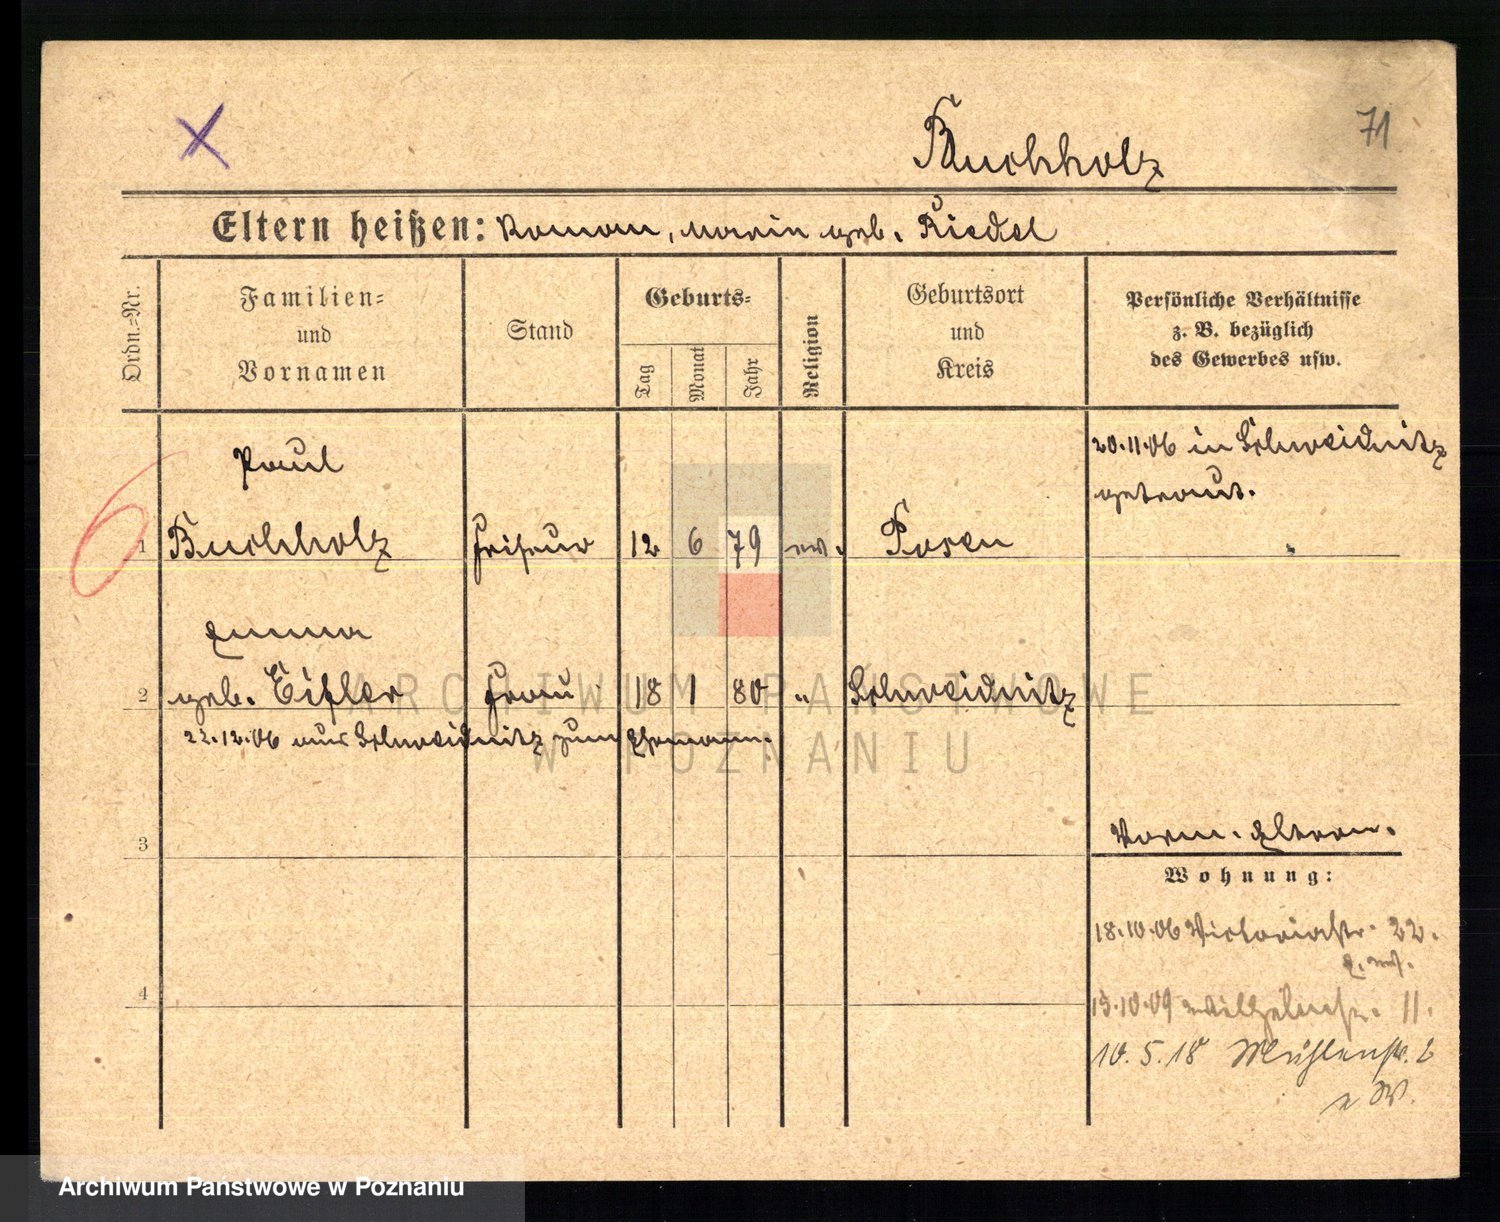 71
Buchholz
Eltern heißen: Roman, Marie geb. Riedel
Ordn.=Nr.
Familien=
und
Vornamen
Stand
Geburts=
Tag
Monat
Jahr
Religion
Geburtsort
und
Kreis
Persönliche Verhältnisse
z. B. bezüglich
des Gewerbes usw.
20.11.06 in Schweidnitz
getraut.
Paul
1 Buchholz Friseur 12 6 79 ev. Posen
Emma
2 geb. Eifler Frau 18 1 80 " Schweidnitz
22.12.06 aus Schweidnitz zum Ehemann.
3
Vorm. Eltern.
Wohnung:
18.10.06 Victoriastr. 22.
4
15.10.09 Wilhelmstr. 11.
10.5.18 Mühlenstr. 2
W.
ARCHIWUM PAŃSTWOWE
W POZNANIU
Archiwum Państwowe w Poznaniu